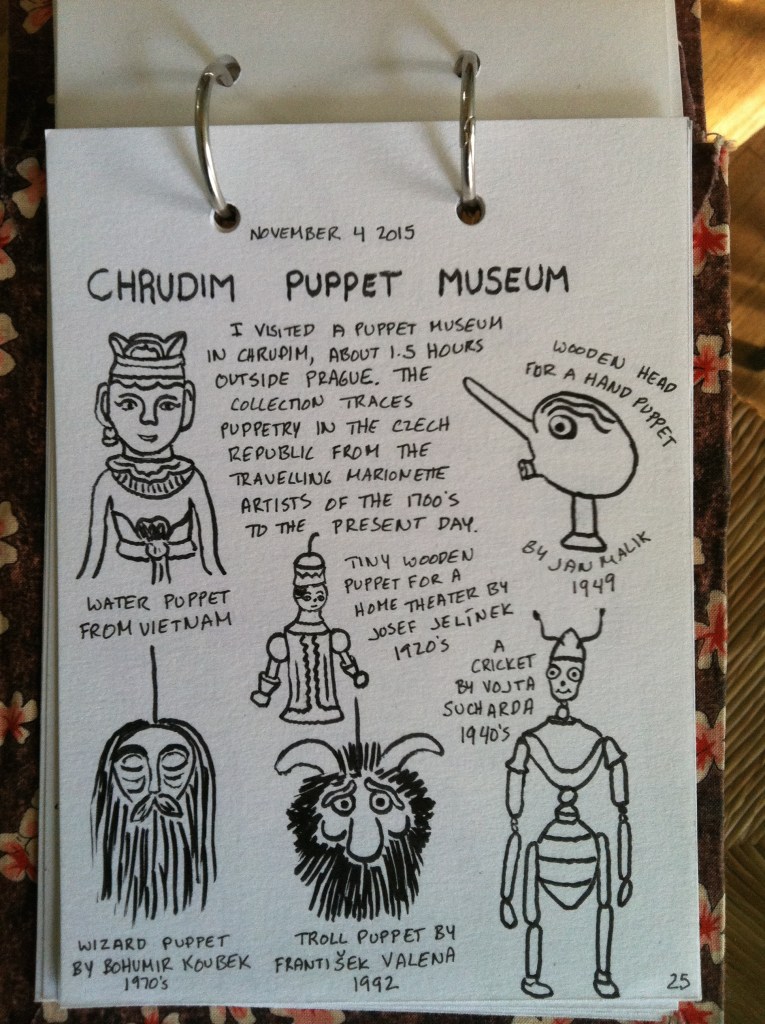 NOVEMBER 4 2015
CHRUDIM PUPPET MUSEUM
I VISITED A PUPPET MUSEUM
IN CHRUDIM, ABOUT 1.5 HOURS
OUTSIDE PRAGUE. THE
COLLECTION TRACES
PUPPETRY IN THE CZECH
REPUBLIC FROM THE
TRAVELLING MARIONETTE
ARTISTS OF THE 1700'S
TO THE PRESENT DAY.
WOODEN HEAD
FOR A HAND PUPPET
BY JAN MALIK
1949
WATER PUPPET
FROM VIETNAM
TINY WOODEN
PUPPET FOR A
HOME THEATER BY
JOSEF JELÍNEK
1920'S
A
CRICKET
BY VOJTA
SUCHARDA
1940'S
WIZARD PUPPET
BY BOHUMIR KOUBEK
1970'S
TROLL PUPPET BY
FRANTIŠEK VALENA
1992
25